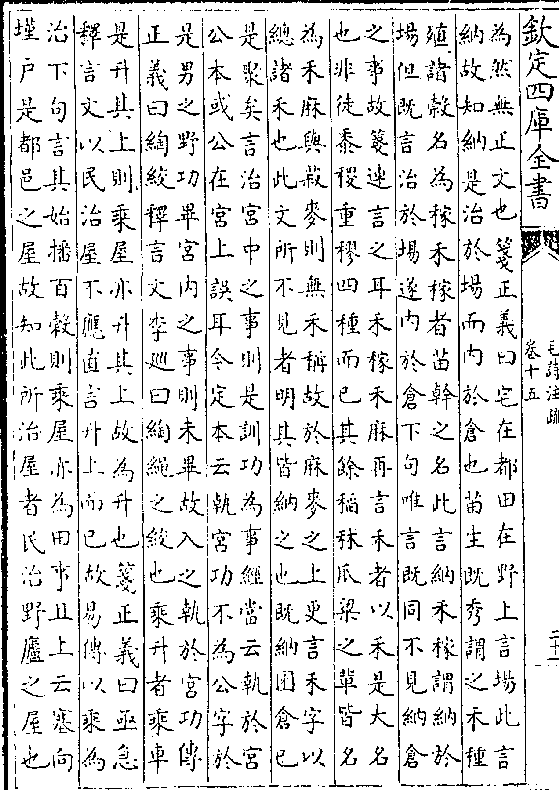 欽定四庫全書
毛詩注疏
卷十五
為然無正文也箋正義曰宅在都田在野上言場此言
納故知納是治於場而内於倉也苗生既秀謂之禾種
殖諸穀名為稼禾稼者苗幹之名此言納禾稼謂納於
場但既言治於場遂内於倉下句唯言既同不見納倉
之事故箋連言之耳禾稼禾麻再言禾者以禾是大名
也非徒黍稷重穋四種而已其餘稻秫苽粱之輩皆名
為禾麻與菽麥則無禾稱故於麻麥之上更言禾字以
總諸禾也此文所不見者明其皆納之也既納囷倉已
是聚矣言治宮中之事則是訓功為事經當云執於宮
公本或公在宮上誤耳今定本云執宮功不為公字於
是男之野功畢宮内之事則未畢故入之執於宮功傳
正義曰綯絞釋言文李廵曰綯繩之絞也乘升者乘車
是升其上則乘屋亦升其上故為升也箋正義曰亟急
釋言文以民治屋不應直言升上而已故易傳以乘為
治下句言其始播百穀則乘屋亦為田事且上云塞向
墐户是都邑之屋故知此所治屋者民治野廬之屋也